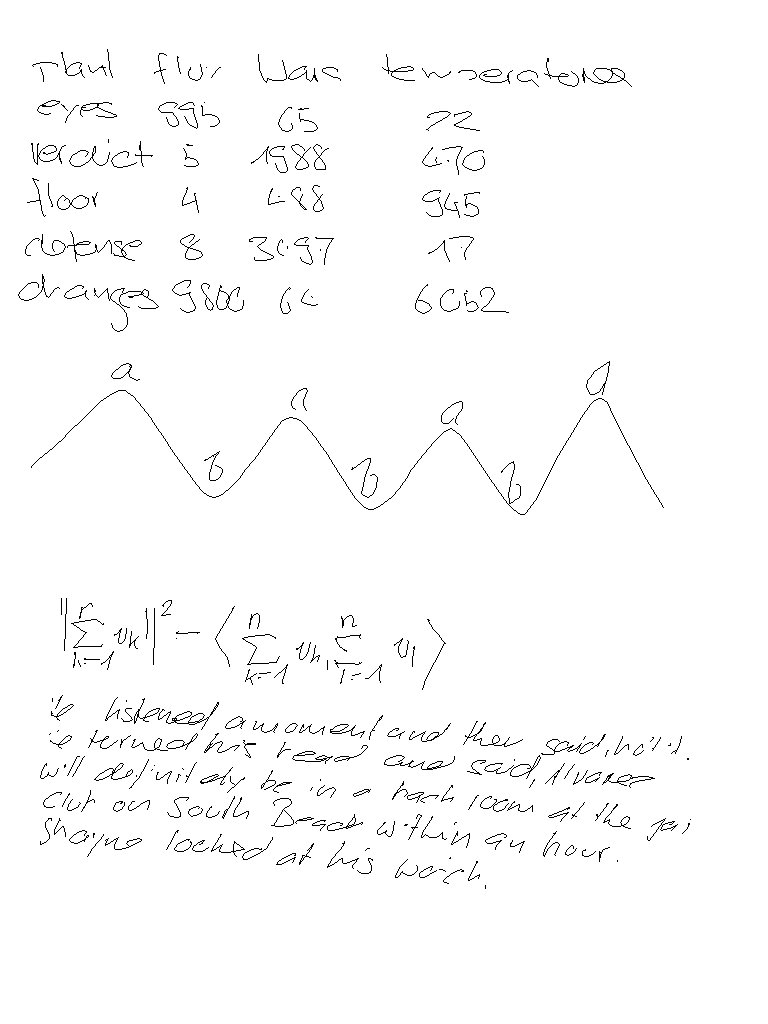 eyes 995 65 22
verdict 5 1988 470
floor 4 488 945
defense 8 3497 17
9800 64 6052
a a a a
b b b
‖∑_{k=1}^{n} v_k‖² = ⟨∑_{k=1}^{n} v_k, ∑_{l=1}^{n} v_l⟩
listened a moment and then said, hold it.
turned his head and said, Alvarez
will definitely be in a back room at the
club on South Beach within an hour.
Shayne looked at his watch.